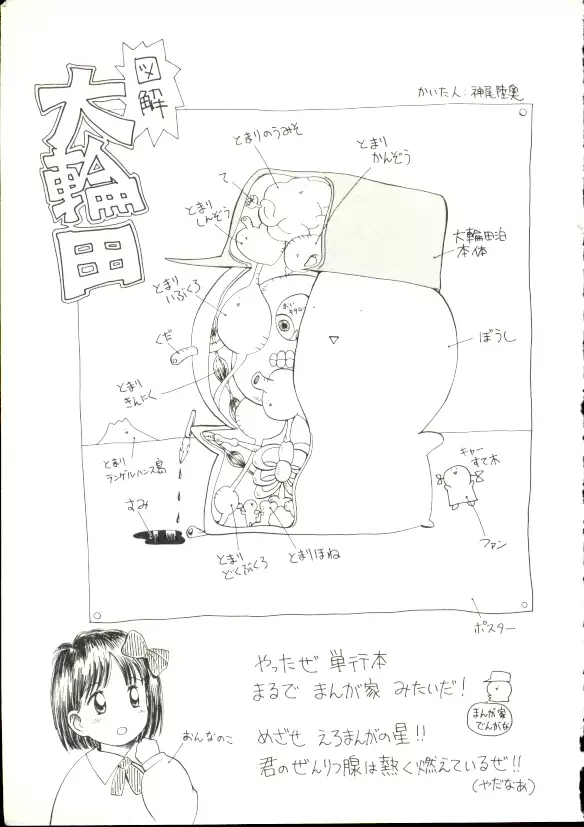 図解
大輪田
かいた人：神尾陸奥
とまりのうみそ
とまり
かんぞう
て
とまり
しんぞう
大輪田泊
本体
とまり
いぶくろ
おいキタロー
ぼうし
くだ
とまり
きんにく
とまり
ランゲルハンス島
キャー
すて木
すみ
ファン
とまり
どくぶくろ
とまりほね
ポスター
やったぜ 単行本
まるで まんが家 みたいだ！
まんが家
でんがな
おんなのこ
めざせ えろまんがの星!!
君のぜんりつ腺は熱く燃えているぜ!!
(やだなあ)